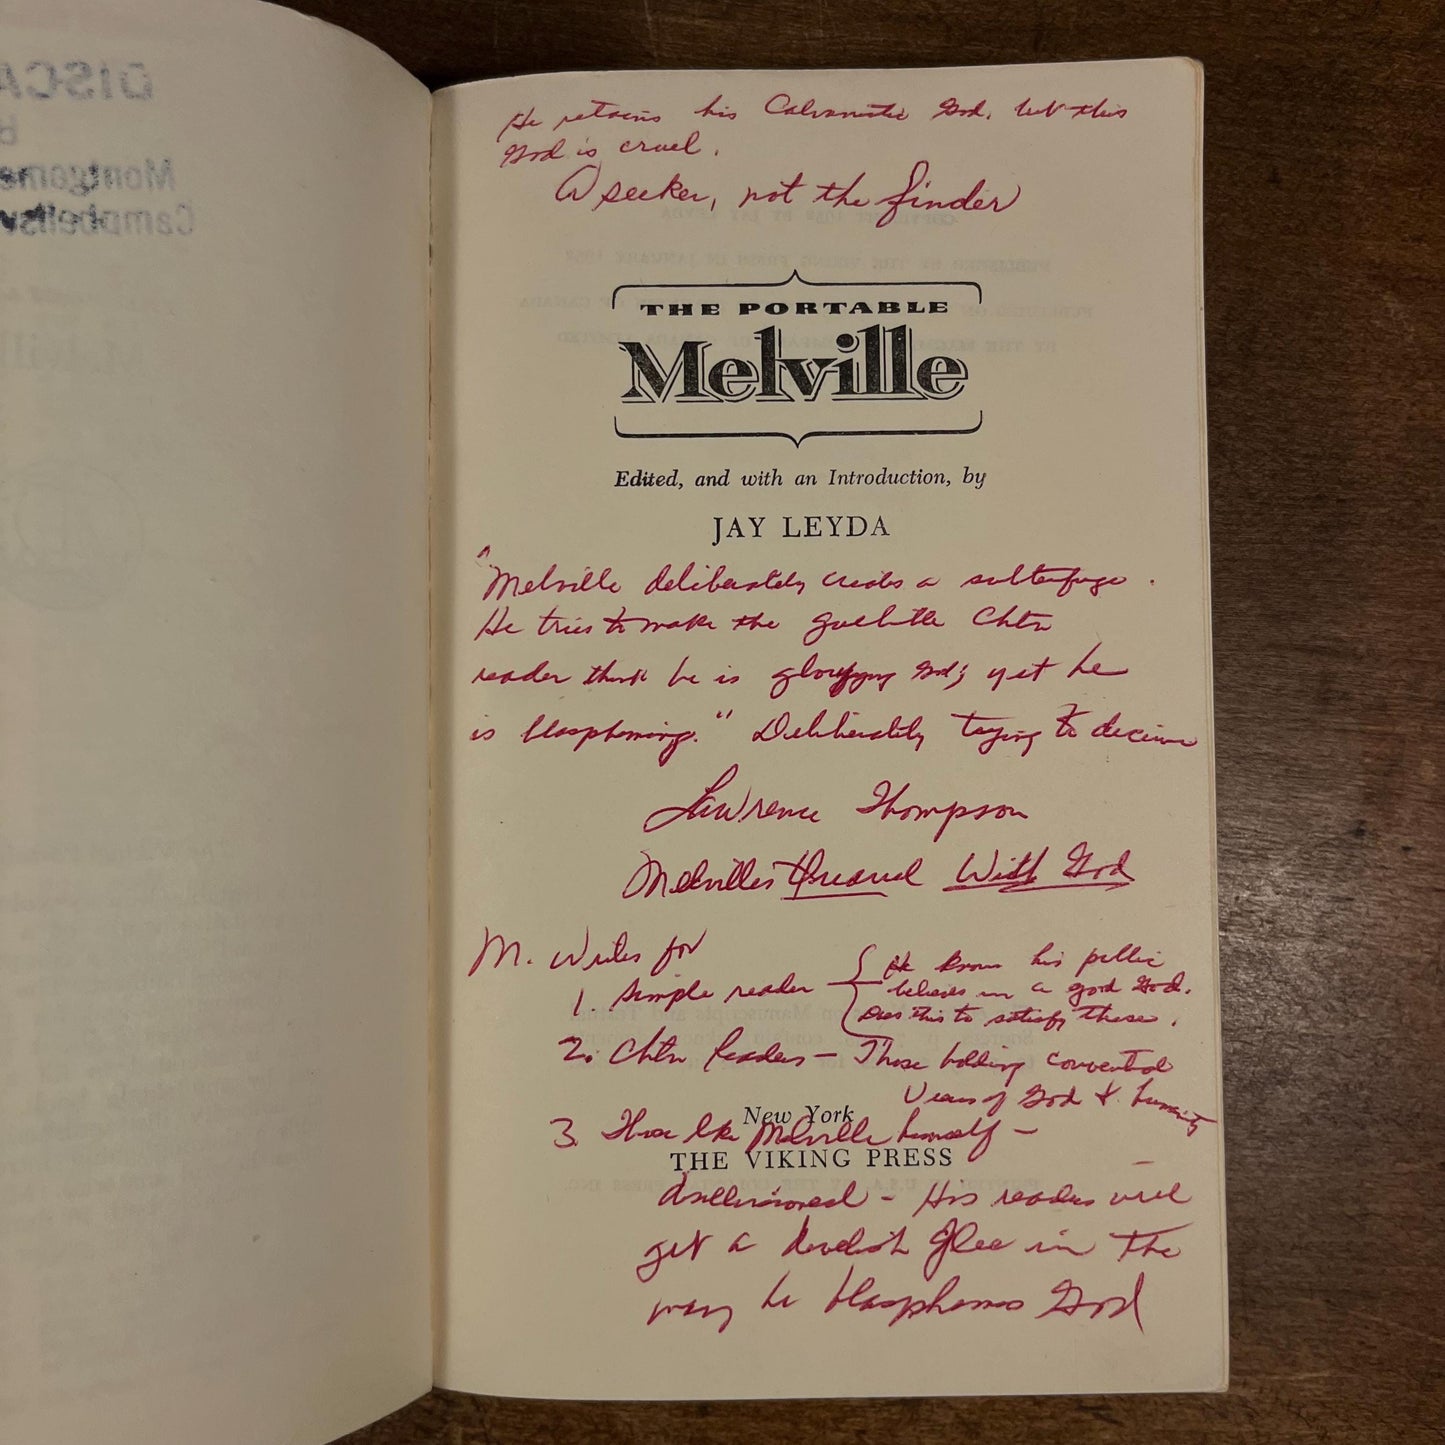 DISCA
R
Montgome
Campbellsv
He retains his Calvanistic God, but this
God is cruel.
A seeker, not the finder
THE PORTABLE
Melville
Edited, and with an Introduction, by
JAY LEYDA
"Melville deliberately creates a subterfuge.
He tries to make the gullible Chtn
reader think he is glorifying God; yet he
is blaspheming." Deliberately trying to deceive
Lawrence Thompson
Melville's Quarrel With God
M. Writes for
1. Simple reader – He knows his public
believes in a good God.
Does this to satisfy these.
2. Chtn readers – Those holding
Views of God & humanity
New York
3. Those like Melville himself –
THE VIKING PRESS
disillusioned – His readers will
get a devilish glee in the
way he blasphemes God